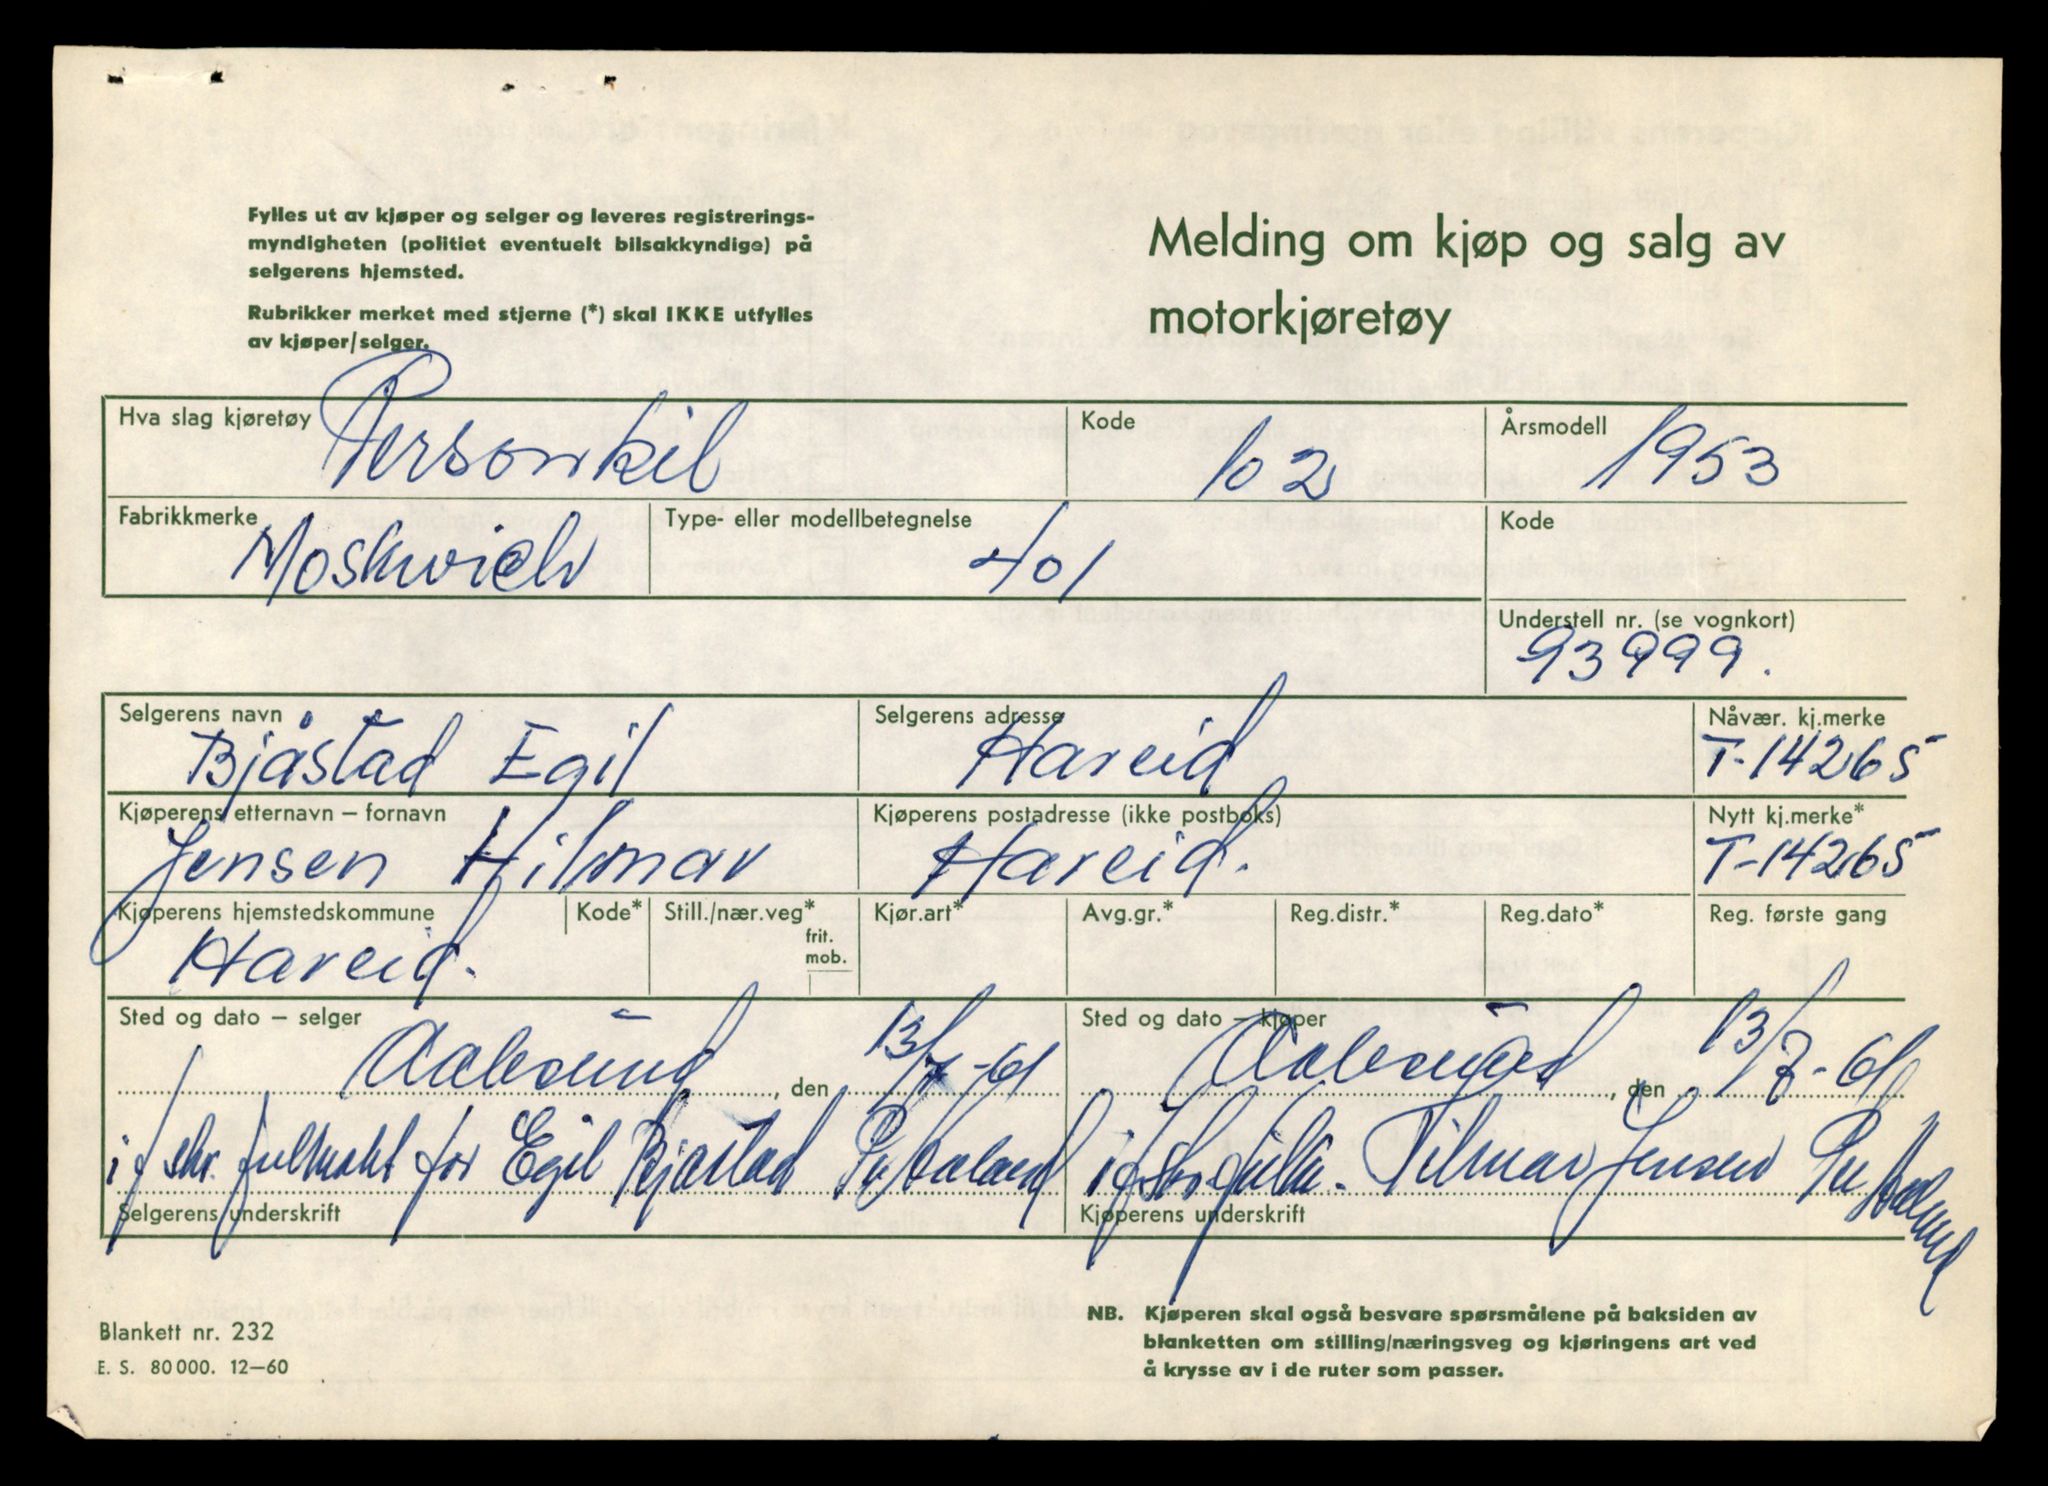 Fylles ut av kjøper og selger og leveres registrerings-
myndigheten (politiet eventuelt bilsakkyndige) på
selgerens hjemsted.
Rubrikker merket med stjerne (*) skal IKKE utfylles
av kjøper/selger.
Melding om kjøp og salg av
motorkjøretøy
Hva slag kjøretøy Personbil
Kode 102
Årsmodell 1953
Fabrikkmerke Moskwich
Type- eller modellbetegnelse 401
Kode
Understell nr. (se vognkort)
93999.
Selgerens navn
Bjåstad Egil
Selgerens adresse
Hareid
Nåvær. kj.merke
T-14265
Kjøperens etternavn – fornavn
Jensen Hilmar
Kjøperens postadresse (ikke postboks)
Hareid.
Nytt kj.merke*
T-14265
Kjøperens hjemstedskommune
Hareid.
Kode*
Still./nær.veg*
frit.
mob.
Kjør.art*
Avg.gr.*
Reg.distr.*
Reg.dato*
Reg. første gang
Sted og dato – selger
Aalesund, den 13/7-61
i f skr. fullmakt for Egil Bjåstad
Selgerens underskrift
Sted og dato – kjøper
Aalesund, den 13/7-61
Jensen
Kjøperens underskrift
NB. Kjøperen skal også besvare spørsmålene på baksiden av
blanketten om stilling/næringsveg og kjøringens art ved
å krysse av i de ruter som passer.
Blankett nr. 232
E. S. 80 000. 12–60